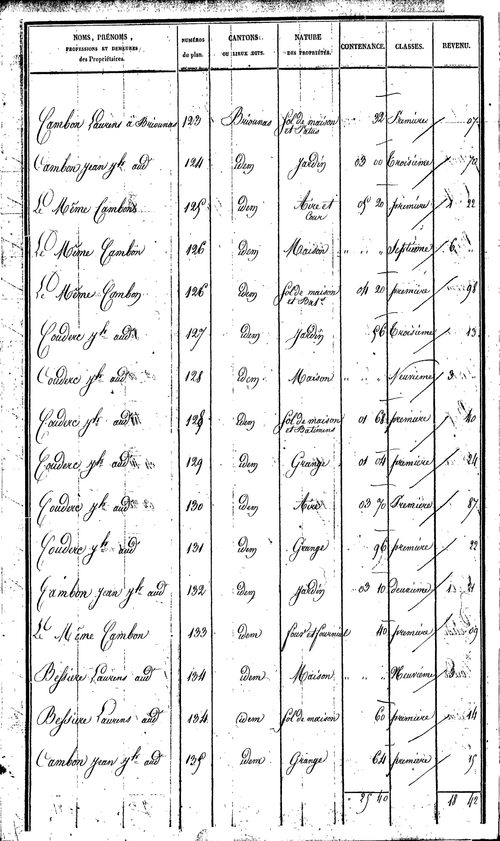 NOMS, PRÉNOMS, PROFESSIONS ET DEMEURES des Propriétaires. NUMÉROS du plan. CANTONS OU LIEUX DITS. NATURE DES PROPRIÉTÉS. CONTENANCE. CLASSES. REVENU.
Cambon Laurens à Briounas 123 Briounas Sol de maison et Patus 32 Premiere 07
Cambon jean yte aud 124 idem Jardin 03 00 Troisième 70
Le Même Cambon 125 idem Aire et Cour 05 20 premiere 1 22
Le Même Cambon 126 idem Maison " " " Septième 6
Le Même Cambon 126 idem Sol de maison et Bat.s 04 20 premiere 98
Couderc yte aud 127 idem Jardin 56 Troisieme 13
Couderc yte aud 128 idem Maison " " Neuvieme 3
Couderc yte aud 128 idem Sol de maison et Batimens 01 68 premiere 40
Couderc yte aud 129 idem Grange 01 04 premiere 24
Couderc yte aud 130 idem Aire 03 70 Premiere 87
Couderc yte aud 131 idem Grange 96 premiere 22
Cambon jean yte aud 132 idem Jardin 03 10 deuxieme 1 21
Le Même Cambon 133 idem four et fourniel 40 premiere 09
Bessiere Laurens aud 134 idem Maison " " Neuvieme 3
Bessiere Laurens aud 134 idem Sol de maison 60 premiere 14
Cambon jean yte aud 135 idem Grange 64 premiere 15
25 40 18 42